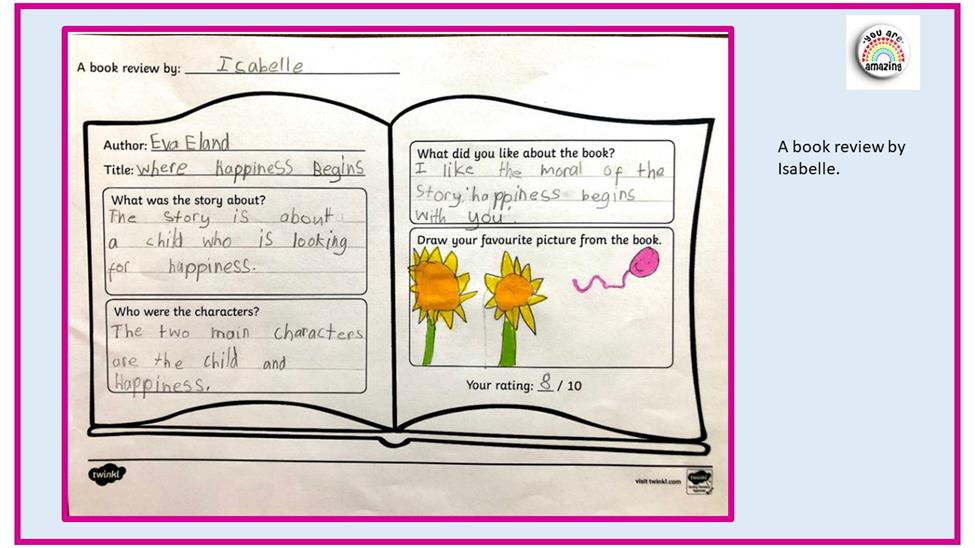 you are
amazing
A book review by: Isabelle
Author: Eva Eland
Title: where Happiness Begins
What was the story about?
The story is about
a child who is looking
for happiness.
Who were the characters?
The two main characters
are the child and
Happiness.
What did you like about the book?
I like the moral of the
Story, 'happiness begins
with you'.
Draw your favourite picture from the book.
Your rating: 8 / 10
twinkl
visit twinkl.com
twinkl
A book review by
Isabelle.